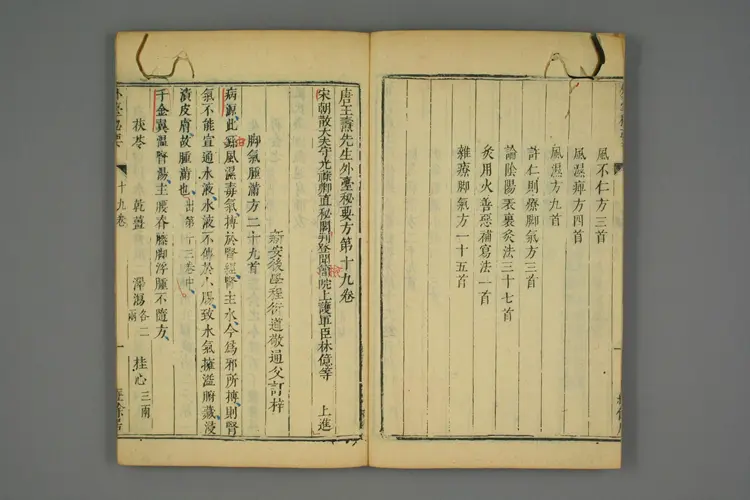 風不仁方三首
風濕痺方四首
風濕方九首
許仁則療脚氣方三首
論陰陽表裏灸法三十七首
灸用火善惡補寫法一首
雜療脚氣方一十五首
唐王燾先生外臺秘要方第十九卷
宋朝散大夫守光祿卿直秘閣判登聞檢院上護軍臣林億等 上進
新安後學程衍道敬通父訂梓
脚氣腫滿方二十九首
病源此由風濕毒氣搏於腎經腎主水今爲邪所搏則腎
氣不能宣通水液水液不傳於小腸致水氣擁溢腑臟浸
漬皮膚故腫滿也出第十三卷中
千金異温腎湯主腰脊膝脚浮腫不隨方
茯苓 乾薑 澤瀉各二兩 桂心三兩
十九卷 一